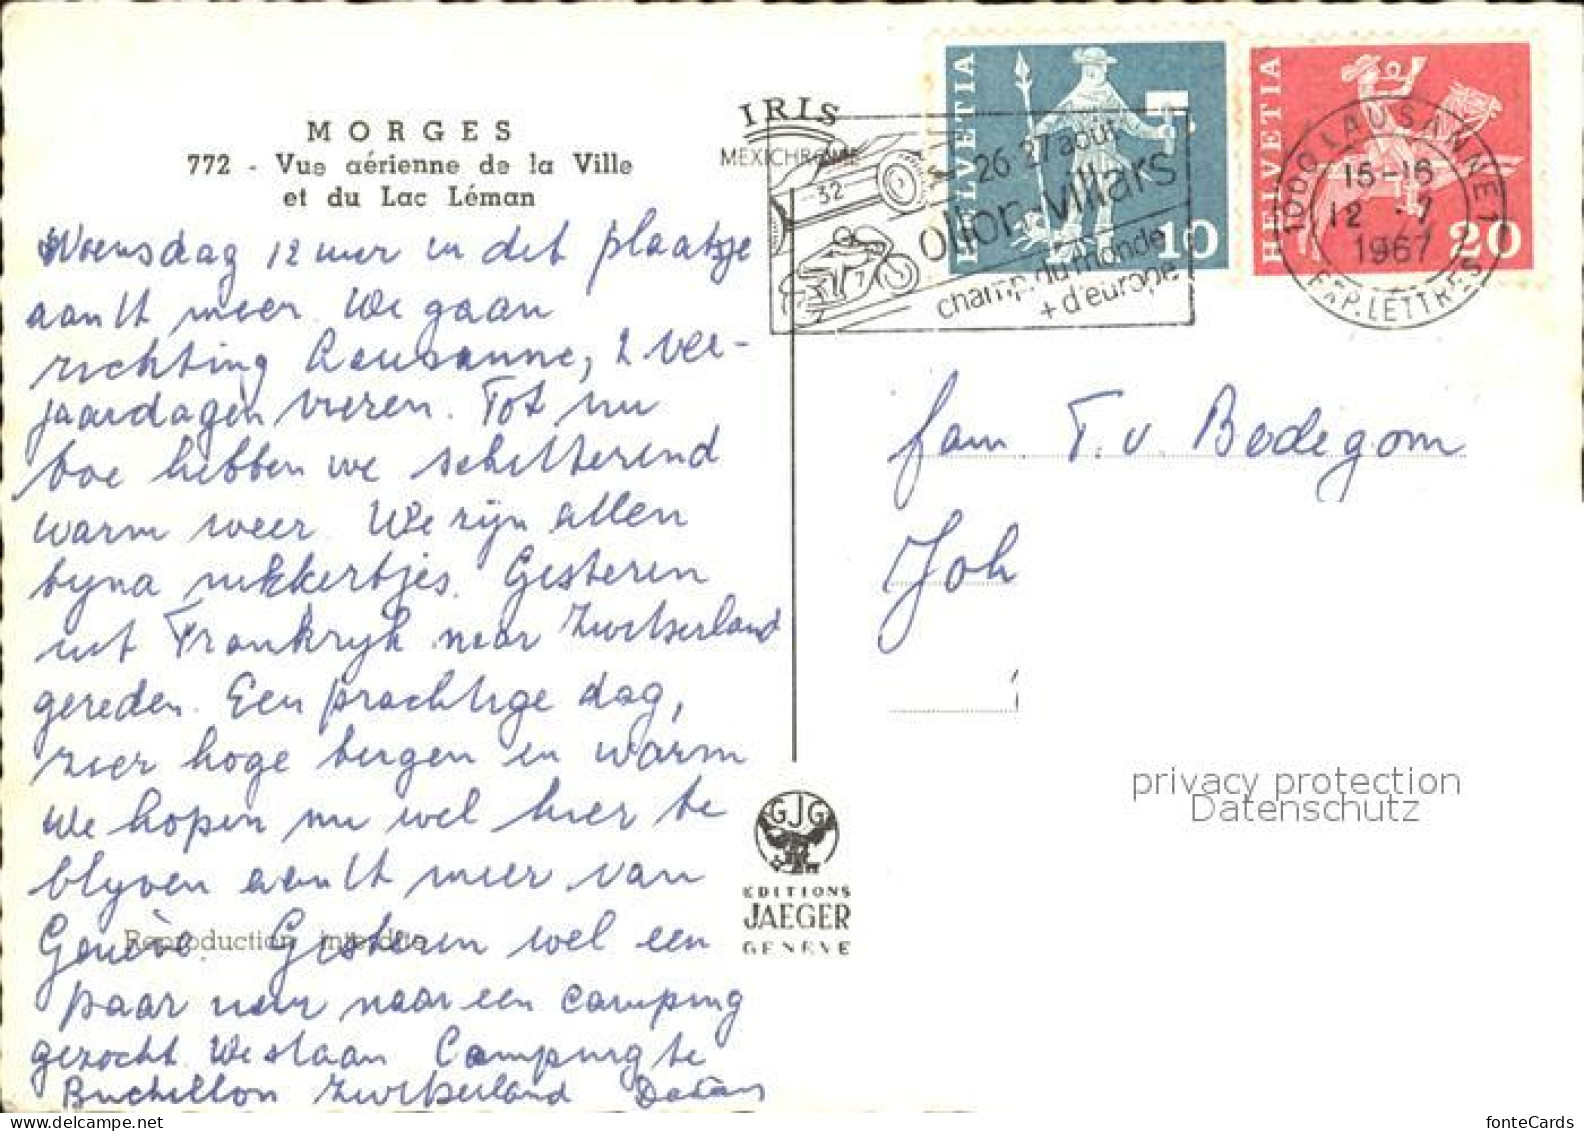 MORGES
772 - Vue aérienne de la Ville
et du Lac Léman
IRIS
MEXICHROME
Woensdag 12 uur in dit plaatsje
aan 't meer. We gaan
richting Lausanne, 2 ver-
jaardagen vieren. Tot nu
toe hebben we schitterend
warm weer. We zijn allen
byna nikkertjes. Gisteren
uit Frankryk naar Zwitserland
gereden. Een prachtige dag,
zeer hoge bergen en warm
We hopen nu wel hier te
blyven aan 't meer van
Genève. Gisteren wel een
paar uur naar een camping
gezocht. We staan Camping te
Buchillon Zwitserland
Reproduction interdite
32
7
26-27 août
ollon-villars
champ. du monde
+ d'europe
HELVETIA
10
HELVETIA
20
1000 LAUSANNE 1
15-16
12 . 7
1967
EXP. LETTRES
fam T. v. Bodegom
Joh
GJG
EDITIONS
JAEGER
GENEVE
privacy protection
Datenschutz
fonteCards